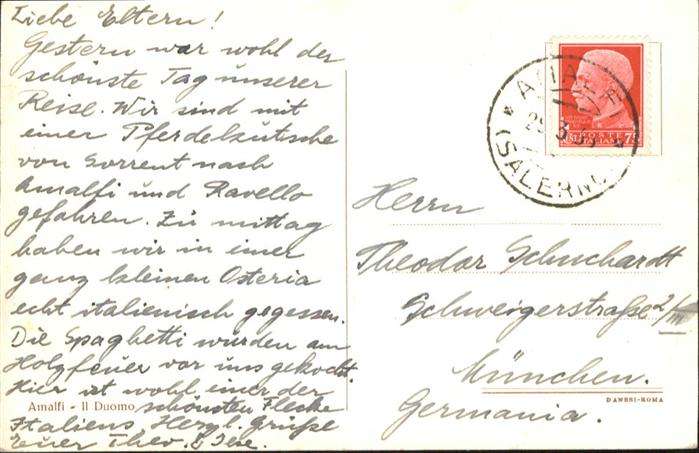 Liebe Eltern!
Gestern war wohl der
schönste Tag unserer
Reise. Wir sind mit
einer Pferdekutsche
von Sorrent nach
Amalfi und Ravello
gefahren. Zu mittag
haben wir in einer
ganz kleinen Osteria
echt italienisch gegessen.
Die Spaghetti wurden am
Holzfeuer vor uns gekocht.
Hier ist wohl einer der
Amalfi - Il Duomo
schönsten Flecke
Italiens. Herzl. Grüße
Euer Theo. &
AMALFI
(SALERNO)
Herrn
Theodor Schuchardt
Schweigerstraße 2/III
München.
DANESI-ROMA
Germania.